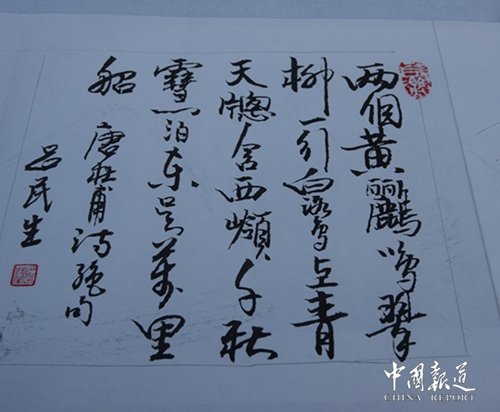 两個黄鸝鳴翠
柳一行白鷺上青
天牕含西嶺千秋
雪门泊东吴萬里
船 唐杜甫诗绝句
吕民生
中國報道
CHINA REPORT